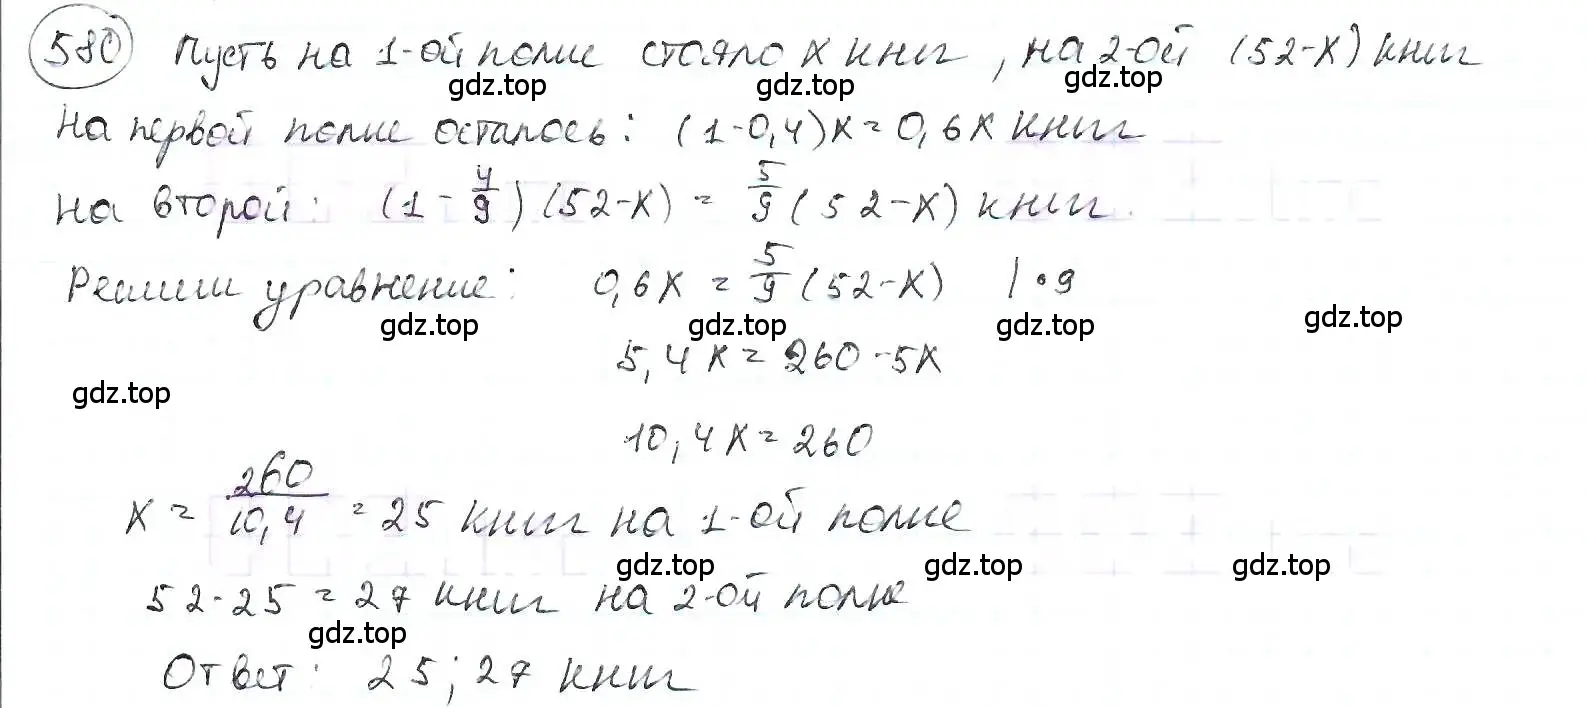 580 Пусть на 1-ой полке стояло x книг, на 2-ой (52-x) книг
gdz.top gdz.top gdz.top
На первой полке осталось: (1-0,4)x = 0,6x книг
На второй: (1 - 4/9)(52-x) = 5/9 (52-x) книг.
Решим уравнение: 0,6x = 5/9 (52-x) | • 9
gdz.top gdz.top gdz.top gdz.top
5,4x = 260 - 5x
gdz.top
10,4x = 260
x = 260/10,4 = 25 книг на 1-ой полке
gdz.top gdz.top gdz.top
52 - 25 = 27 книг на 2-ой полке
gdz.top
Ответ: 25; 27 книг